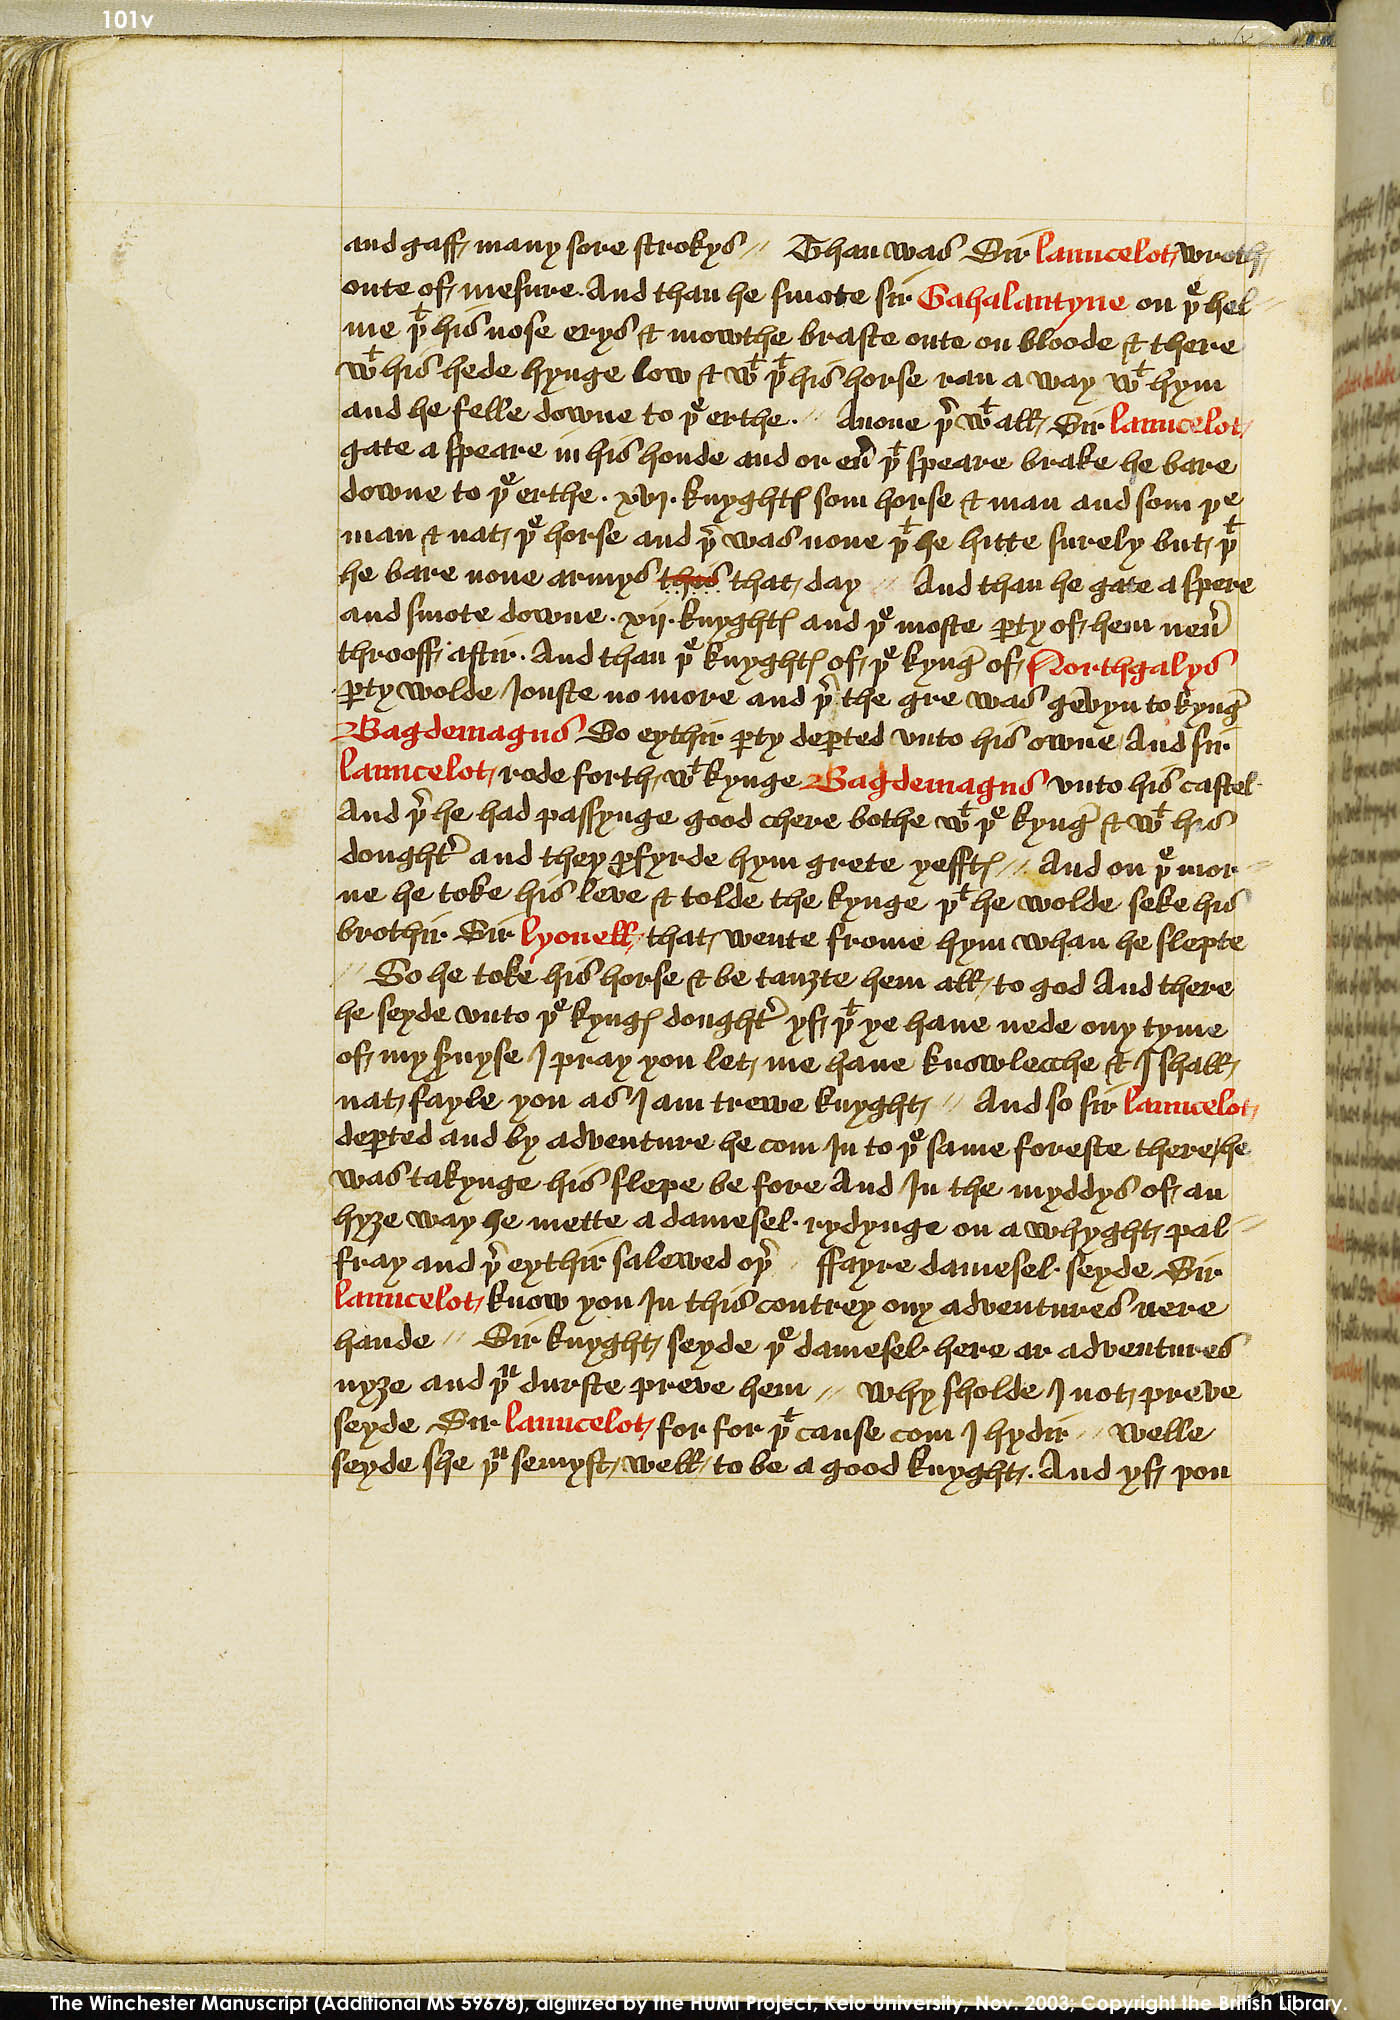 101v
and gaff many sore strokys // Than was Sir launcelot wroth
oute of mesure. And than he smote sir Gahalantyne on þe hel-
me þt his nose erys & mowthe braste oute on bloode & there
wt his hede hynge low & wt þt his horse ran a way wt hym
and he felle downe to þe erthe. // Anone þr wt all Sir launcelot
gate a speare in his honde and or eũ þt speare brake he bare
downe to þe erthe. xvj. knyghtꝭ som horse & man and som þe
man & nat þe horse and þr was none þt he hitte surely but þt
he bare none armys thes that day // And than he gate a spere
and smote downe. xij. knyghtꝭ and þe moste ꝑty of hem neũ
throoff aftir. And than þe knyghtꝭ of þe kynge of Northgalys
ꝑty wolde Jouste no more and þr the gre was gevyn to kynge
Bagdemagus So eythir ꝑty deꝑted vnto his owne And sir
launcelot rode forth wt kynge Bagdemagus vnto his castel
And þr he had passynge good chere bothe wt þe kynge & wt his
doughtr and they ꝓfyrde hym grete yefftꝭ // And on þe mor-
ne he toke his leve & tolde the kynge þt he wolde seke his
brothir Sir lyonell that wente frome hym whan he slepte
// So he toke his horse & be tauȝte hem all to god And there
he seyde vnto þe kyngꝭ doughtr yf þt ye haue nede ony tyme
of my s̃uyse I pray you let me haue knowlecche & I shall
nat fayle you as I am trewe knyght // And so sir launcelot
deꝑted and by adventure he com In to þe same foreste there he
was takynge his slepe be fore And In the myddys of an
hyȝe way he mette a damesel rydynge on a whyght pal-
fray and þr eythir salewed oþr // ffayre damesel seyde Sir
launcelot know you In this contrey ony adventures nere
hande // Sir knyght seyde þe damesel here ar adventures
nyȝe and þu durste preve hem // why sholde I not preve
seyde Sir launcelot for for þt cause com I hydir // Welle
seyde she þu semyst well to be a good knyght. And yf þou
The Winchester Manuscript (Additional MS 59678), digitized by the HUMI Project, Keio University, Nov. 2003; Copyright the British Library.